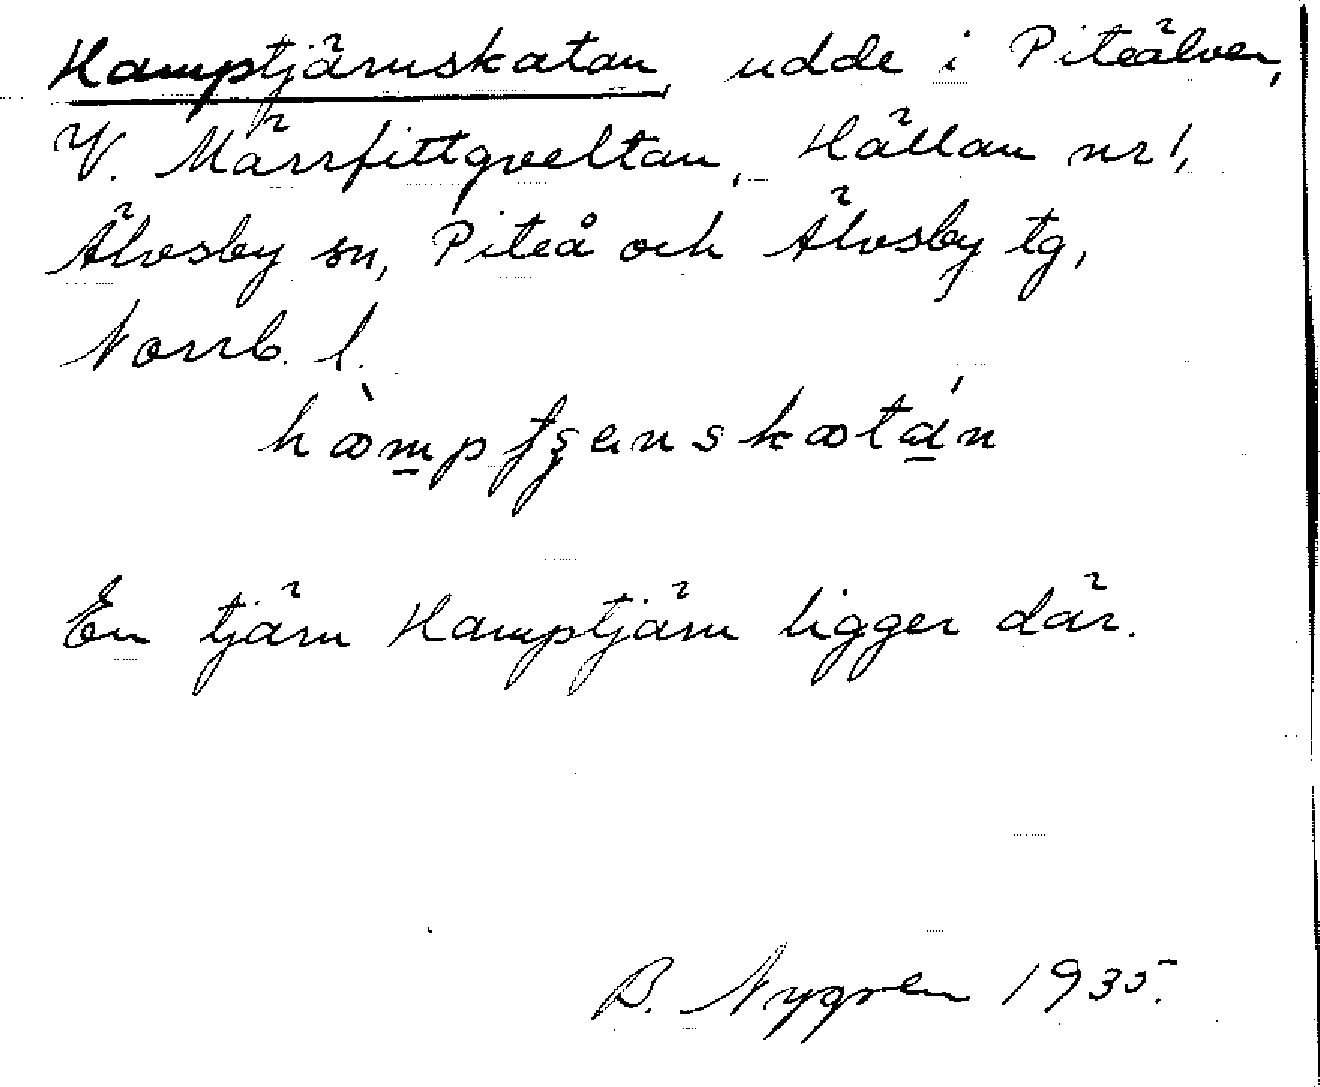 Hamptjärnskatan, udde i Piteälven,
V. Märrfittgveltan, Hällan nr 1,
Älvsby sn, Piteå och Älvsby tg,
Norrb. l.
En tjärn Hamptjärn ligger där.
B. Nygren 1935.